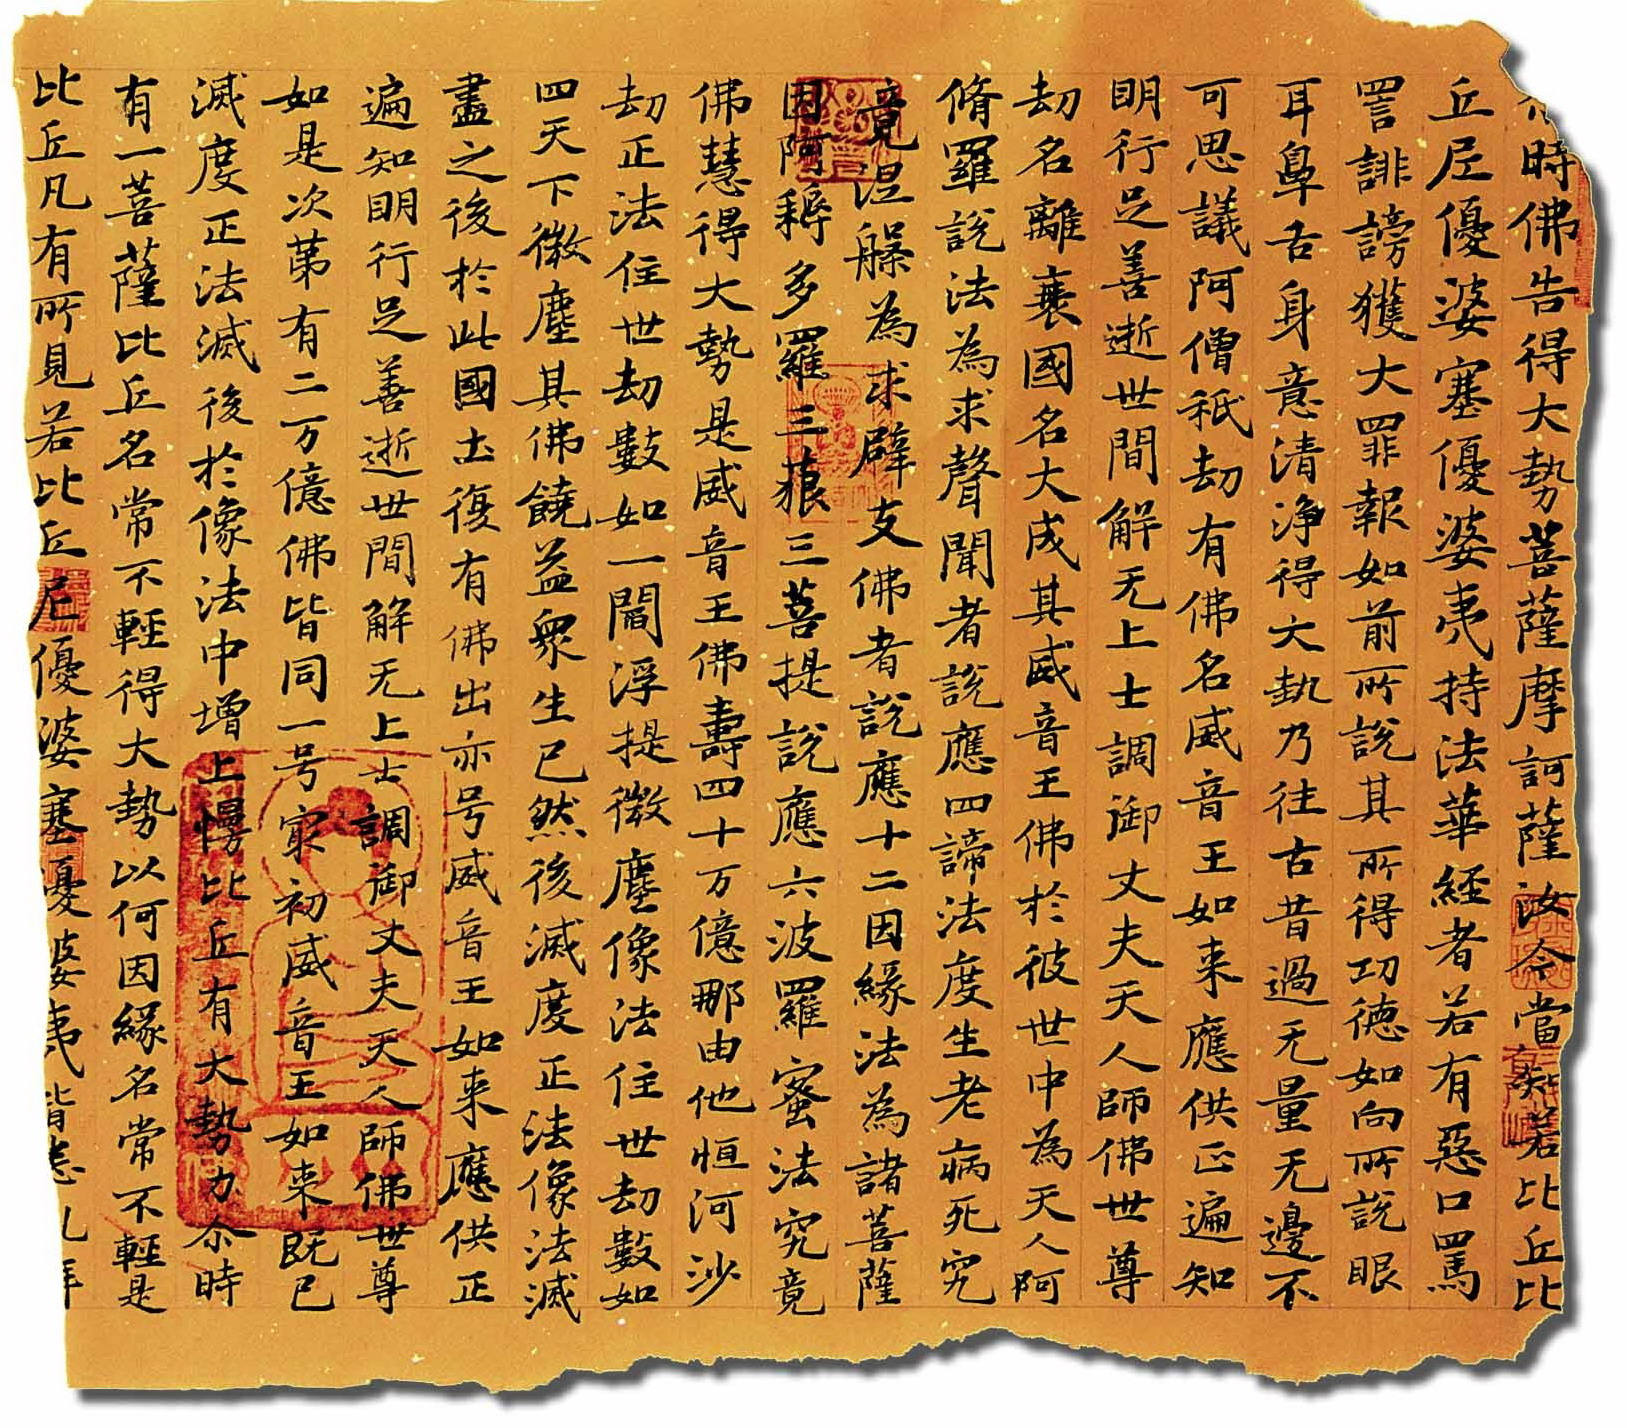 尒時佛告得大勢菩薩摩訶薩汝今當知若比丘比
丘尼優婆塞優婆夷持法華經者若有惡口罵
詈誹謗獲大罪報如前所說其所得功德如向所說眼
耳鼻舌身意清淨得大勢乃往古昔過无量无邊不
可思議阿僧祇劫有佛名威音王如来應供正遍知
明行足善逝世間解无上士調御丈夫天人師佛世尊
劫名離衰國名大成其威音王佛於彼世中為天人阿
脩羅說法為求聲聞者說應四諦法度生老病死究
竟涅槃為求辟支佛者說應十二因緣法為諸菩薩
因阿耨多羅三藐三菩提說應六波羅蜜法究竟
佛慧得大勢是威音王佛壽四十万億那由他恒河沙
劫正法住世劫數如一閻浮提微塵像法住世劫數如
四天下微塵其佛饒益衆生已然後滅度正法像法滅
盡之後於此國土復有佛出亦号威音王如来應供正
遍知明行足善逝世間解无上士調御丈夫天人師佛世尊
如是次第有二万億佛皆同一号寂初威音王如来既已
滅度正法滅後於像法中增上慢比丘有大勢力尒時
有一菩薩比丘名常不輕得大勢以何因緣名常不輕是
比丘凡有所見若比丘尼優婆塞優婆夷皆悉礼拜